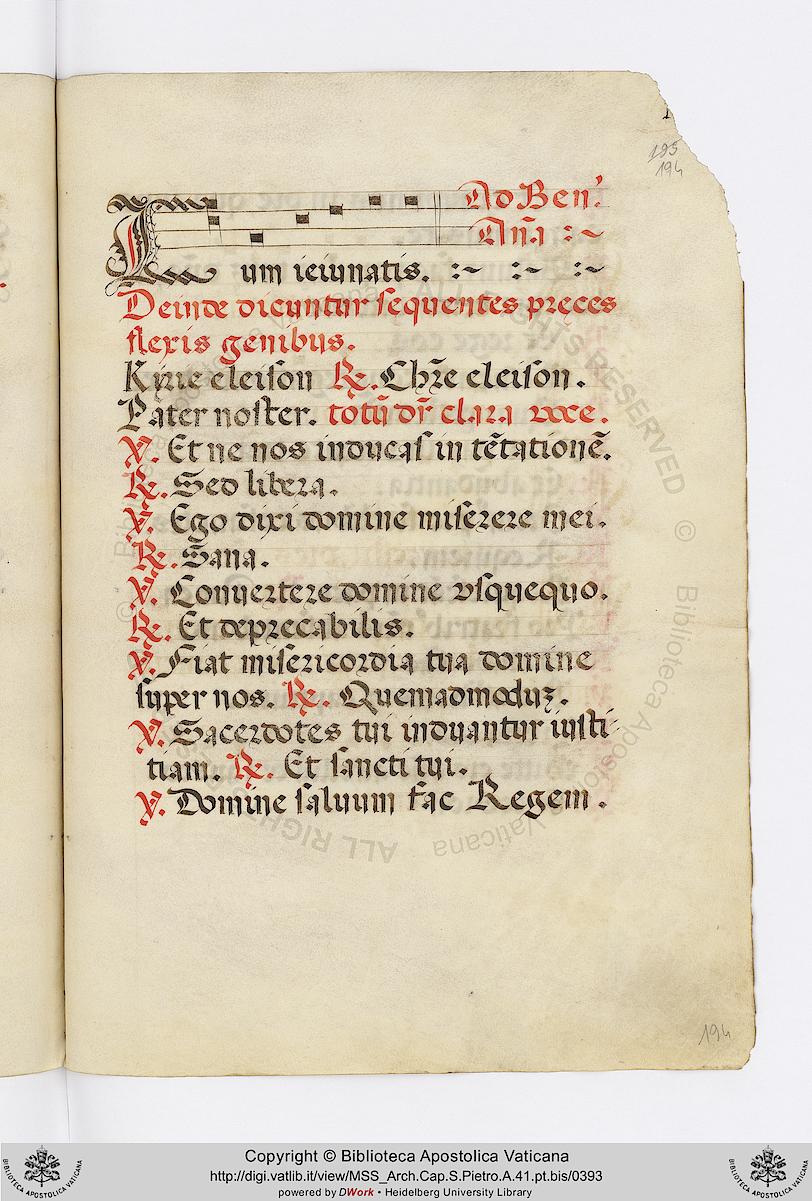 195
194
Ad Ben.
Añа :~
Cum ieiunatis. :~ :~ :~
Deinde dicuntur sequentes preces
flexis genibus.
Kyrie eleison ℟. Chr̃e eleison.
Pater noster. totũ dr̃ clara voce.
℣. Et ne nos inducas in tẽtationẽ.
℟. Sed libera.
℣. Ego dixi domine miserere mei.
℟. Sana.
℣. Conuertere domine vsquequo.
℟. Et deprecabilis.
℣. Fiat misericordia tua domine
super nos. ℟. Quemadmoduʒ.
℣. Sacerdotes tui induantur iusti-
tiam. ℟. Et sancti tui.
℣. Domine saluum fac Regem.
194
Copyright © Biblioteca Apostolica Vaticana
http://digi.vatlib.it/view/MSS_Arch.Cap.S.Pietro.A.41.pt.bis/0393
powered by DWork • Heidelberg University Library